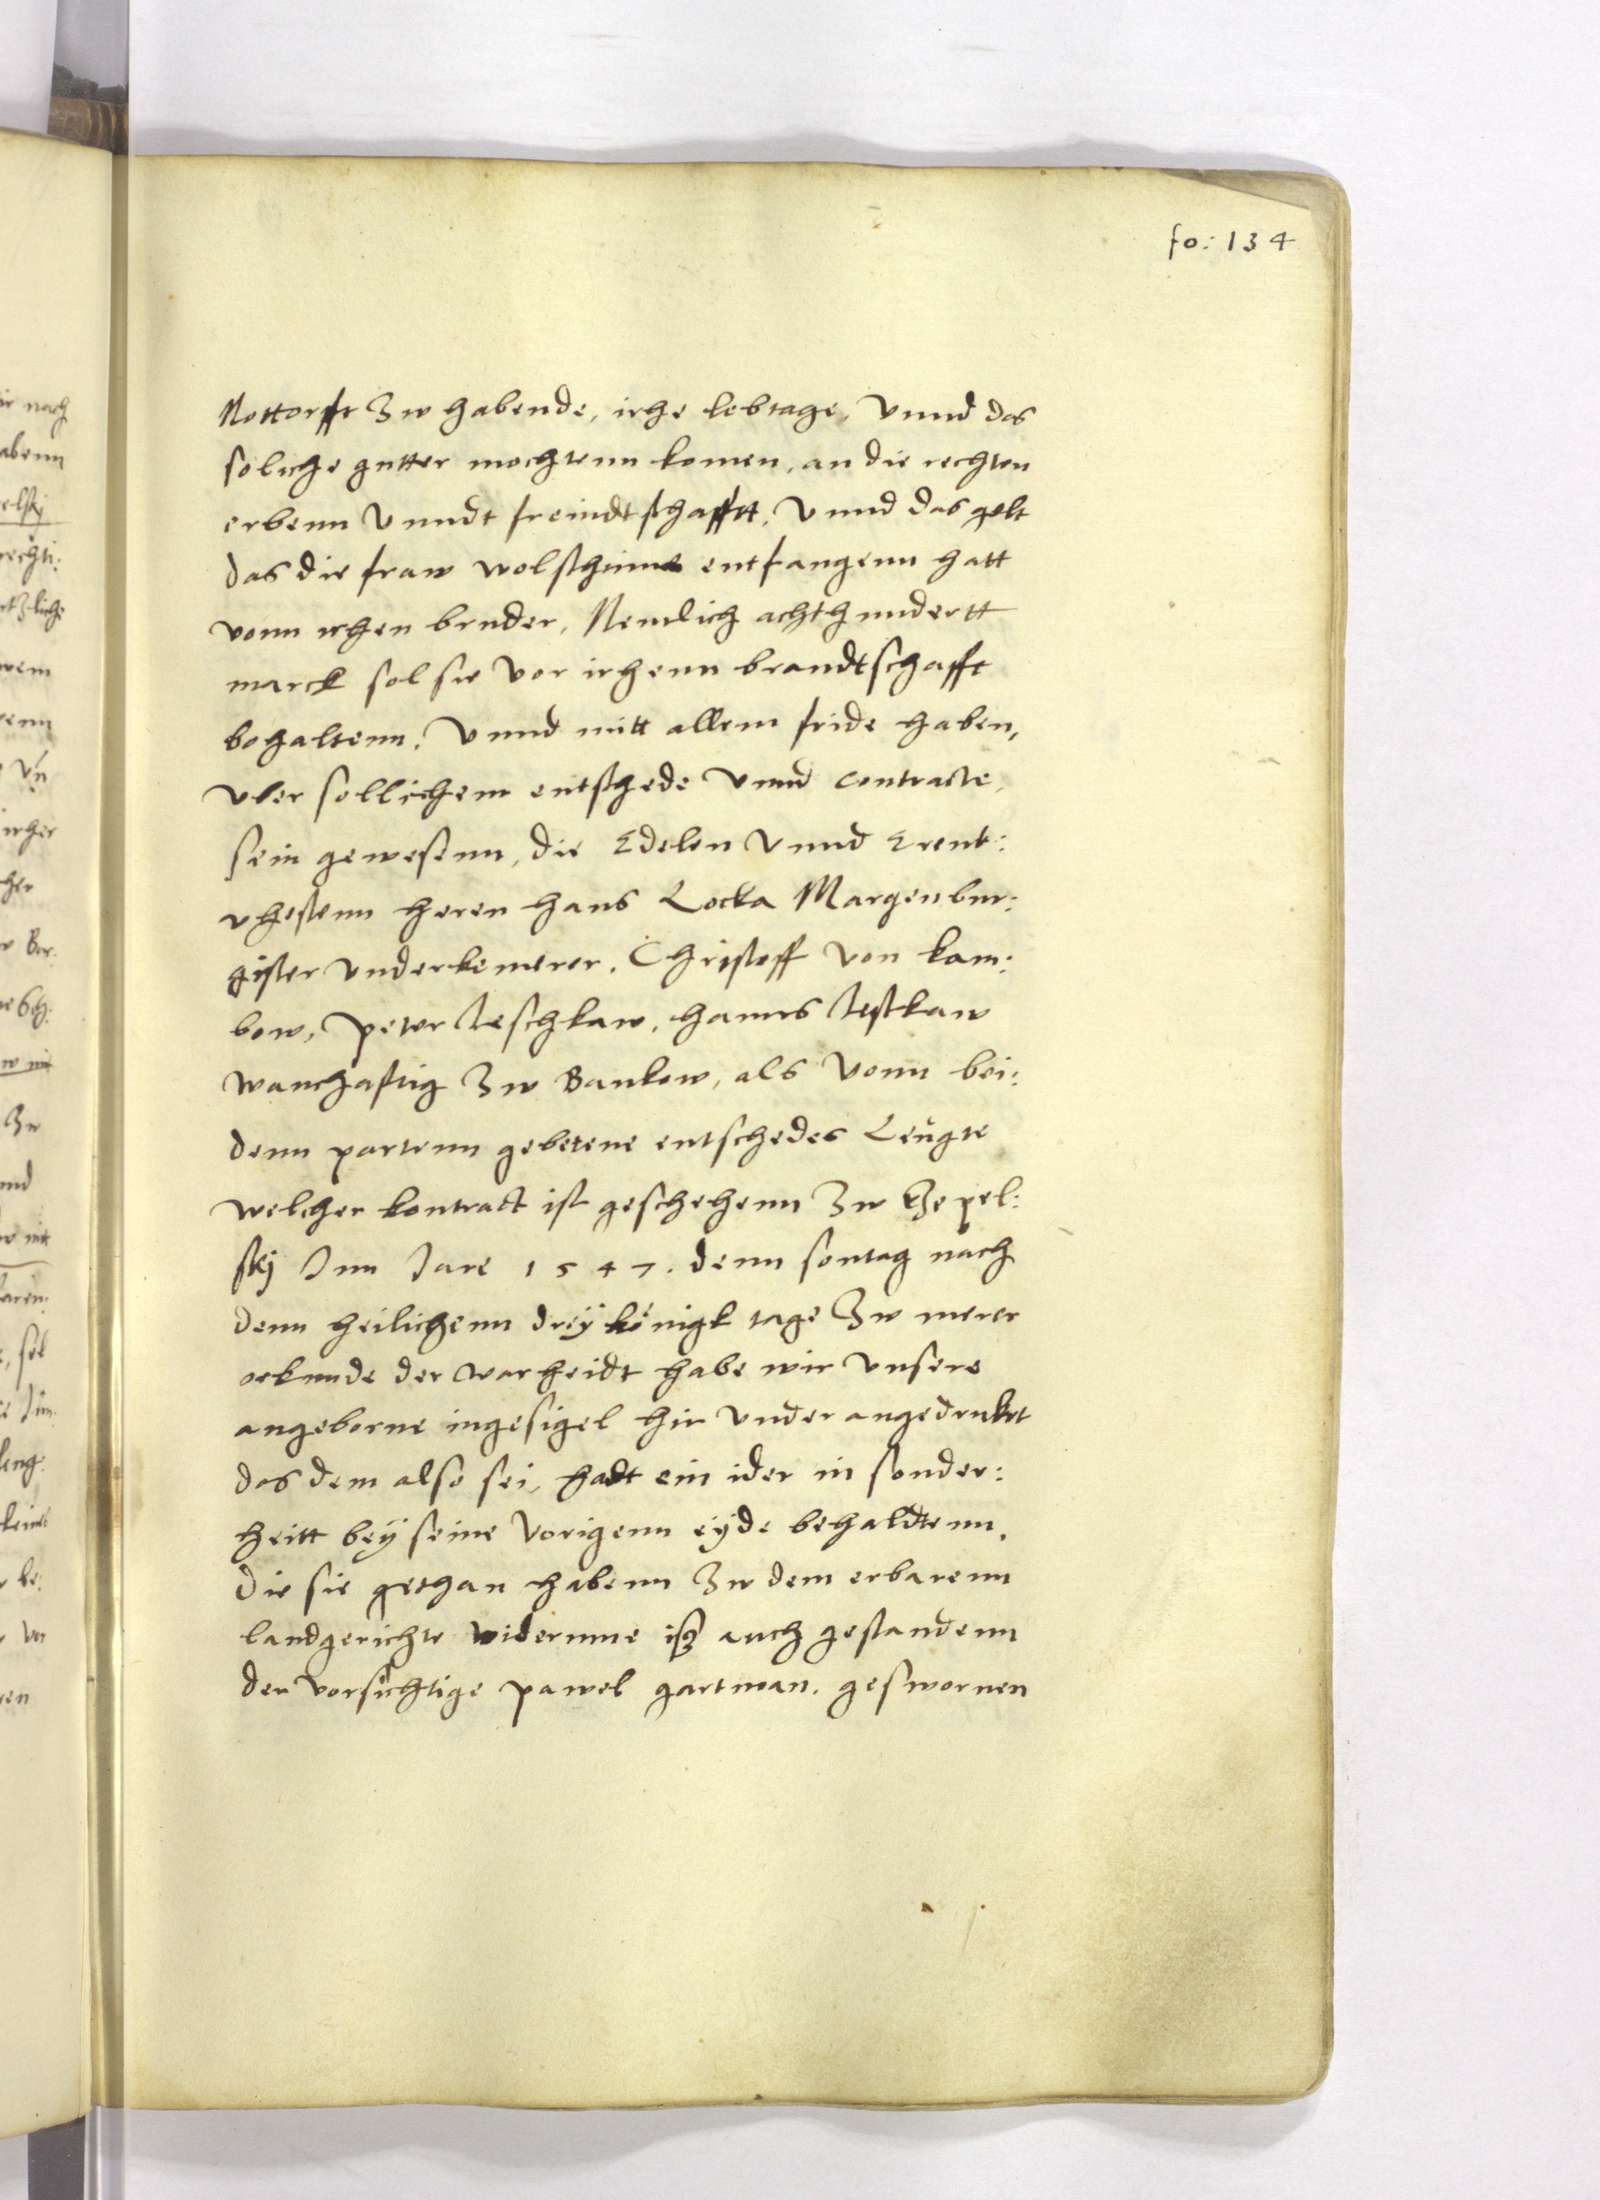 fo: 134
Nottorfft zw habende, irhe lebtage, vnnd das
soliche gutter mochtenn komen, an die rechten
erbenn vnndt freindtschafftt, vnnd das gelt
das die fraw wolschinne entfangenn hatt
vonn irhen bruder, Nemlich achthundertt
marck sol sie vor irhenn brandtschafft
bohaltenn, vnnd mitt allem fride haben,
vber sollichem entschede vnnd contracte,
sein gewesenn, die Edelen vnnd Erent:
vhestenn heren hans Locka Margenbur:
gister vnderkemerer, Christoff von kam:
bow, peter Jeschkaw, hanns Jestkaw
wanhafftig zw Bankow, als vonn bei:
denn partenn gebetene entschedes Leugte
welcher kontract ist geschehenn zw Czepel:
skÿ Jnn Jare 1547. denn sontag nach
denn heilichenn dreÿ königk tage zw merer
orkunde der warheidt habe wir vnsere
angeborne ingesigel hir vnder angedruktt
das dem also sei, hadt ein ider in sonder:
heitt beÿ seine vorigenn eÿde behaldtenn,
die sie gethan habenn zw dem erbarenn
landgerichte widerume isz auch gestandenn
der vorsichtige pawel gartman, geswornen
nach
abenn
wem
irher
zw
sol
leng